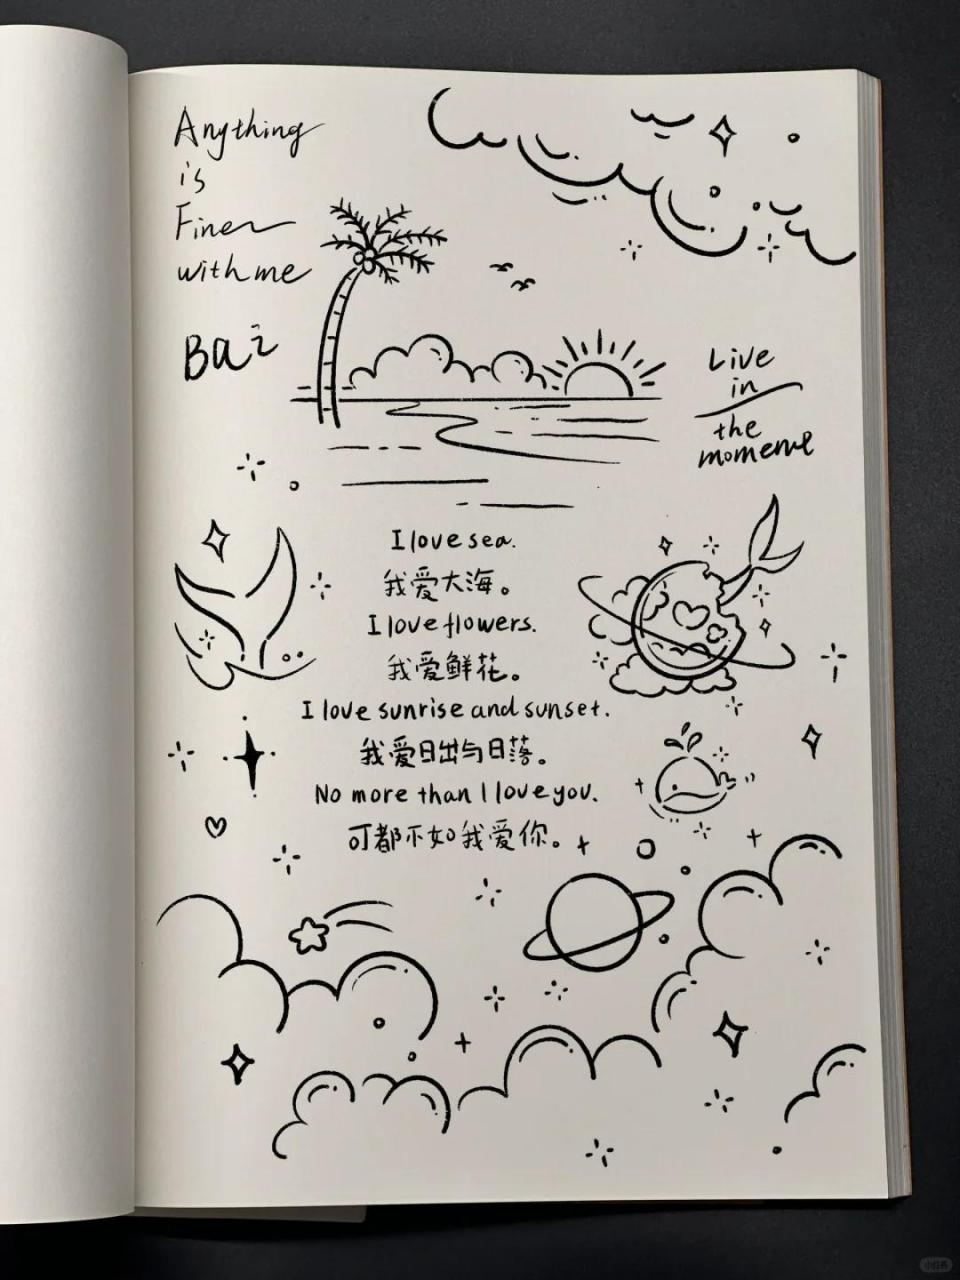 Anything
is
Fine
with me
Bai
Live
in
the
moment
I love sea.
我爱大海。
I love flowers.
我爱鲜花。
I love sunrise and sunset.
我爱日出与日落。
No more than I love you.
可都不如我爱你。
小红书